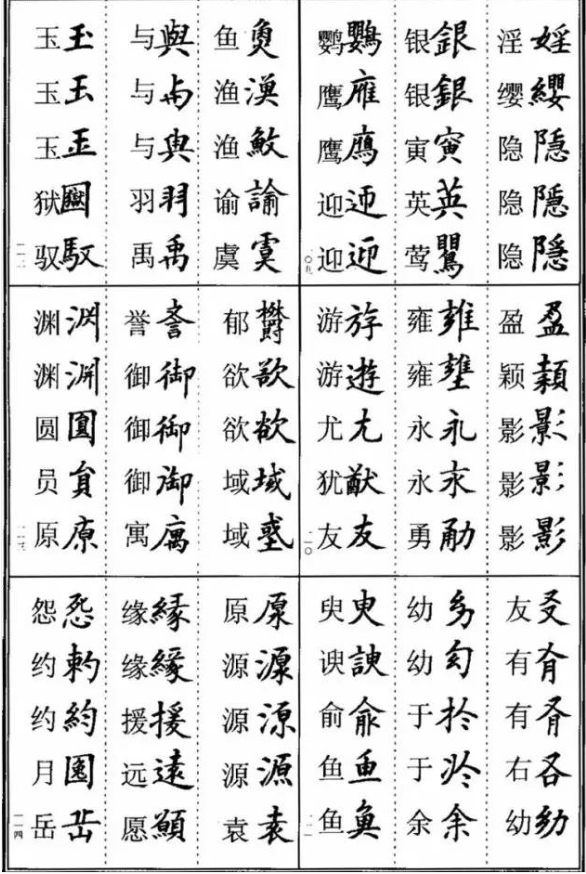 淫婬 缨纓 隐隱 隐隱 隐隱
银銀 银銀 寅寅 英英 莺鸎
鹦鸚 鹰 鹰 迎迎 迎迎
一〇九
盈盈 颖穎 影影 影影 影影
雍雍 雍 永永 永永 勇勈
游斿 游遊 尤尤 犹猷 友友
一一〇
友 有有 有有 右右 幼幼
幼 幼 于扵 于 余余
臾臾 谀諛 俞俞 鱼魚 鱼魚
一一一
鱼魚 渔漁 渔 谕諭 虞虞
与與 与与 与與 羽羽 禹禹
玉玉 玉玉 玉玉 狱 驭馭
一一二
郁欝 欲欲 欲欲 域域 域
誉 御御 御御 御御 寓庽
渊渊 渊渊 圆圓 员員 原原
一一三
原原 源源 源源 源源 袁袁
缘緣 缘緣 援援 远遠 愿
怨怨 约 约約 月 岳岳
一一四